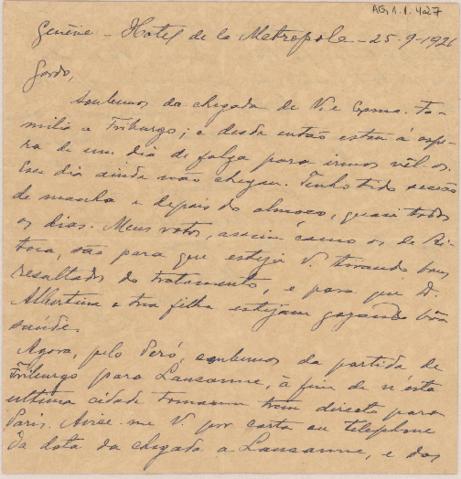 AG,1.1.427
Genève - Hotel de la Metropole - 25-9-1926
Gordo,
Soubemos da chegada de V. e Exma. Fa-
milia a Friburgo; e desde então estou á espe-
ra de um dia de folga para irmos vêl-os.
Esse dia ainda não chegou. Tenho tido sessão
de manha e depois do almoço, quasi todos
os dias. Meus votos, assim como os de
são para que esteja V. tirando bons
resultados do tratamento, e para que D.
Albertina e tua filha estejam gozando bôa
saúde.
Agora, pelo Peró, soubemos da partida de
Friburgo para Lausanne, á fim de n'esta
ultima cidade tomarem trem directo para
Paris. Avise-me V. por carta ou telephone
da data da chegada a Lausanne, e dos